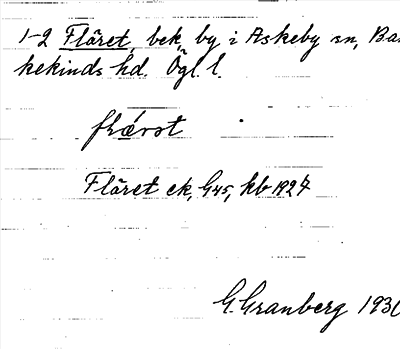 1-2 Fläret, bek. by i Askeby sn, Ba
kekinds hd. Ögl. l.
Fläret ek, G45, kb 1927
G. Granberg 193